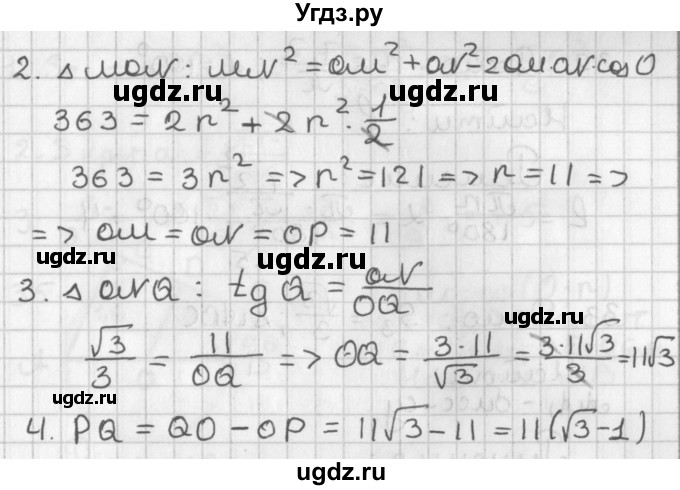 Угдз.ру
2. Δ MON: MN² = OM² + ON² - 2OM·ON·cos O
ugdz.ru ugdz.ru
363 = 2r² + 2r² · 1/2
363 = 3r² => r² = 121 => r = 11 =>
=> OM = ON = OP = 11
ugdz.ru
3. Δ ONQ: tg Q = ON/OQ
ugdz.ru
√3/3 = 11/OQ => OQ = 3·11/√3 = 3·11√3/3 = 11√3
ugdz.ru ugdz.ru
4. PQ = QO - OP = 11√3 - 11 = 11(√3 - 1)
ugdz.ru ugdz.ru
ugdz.ru